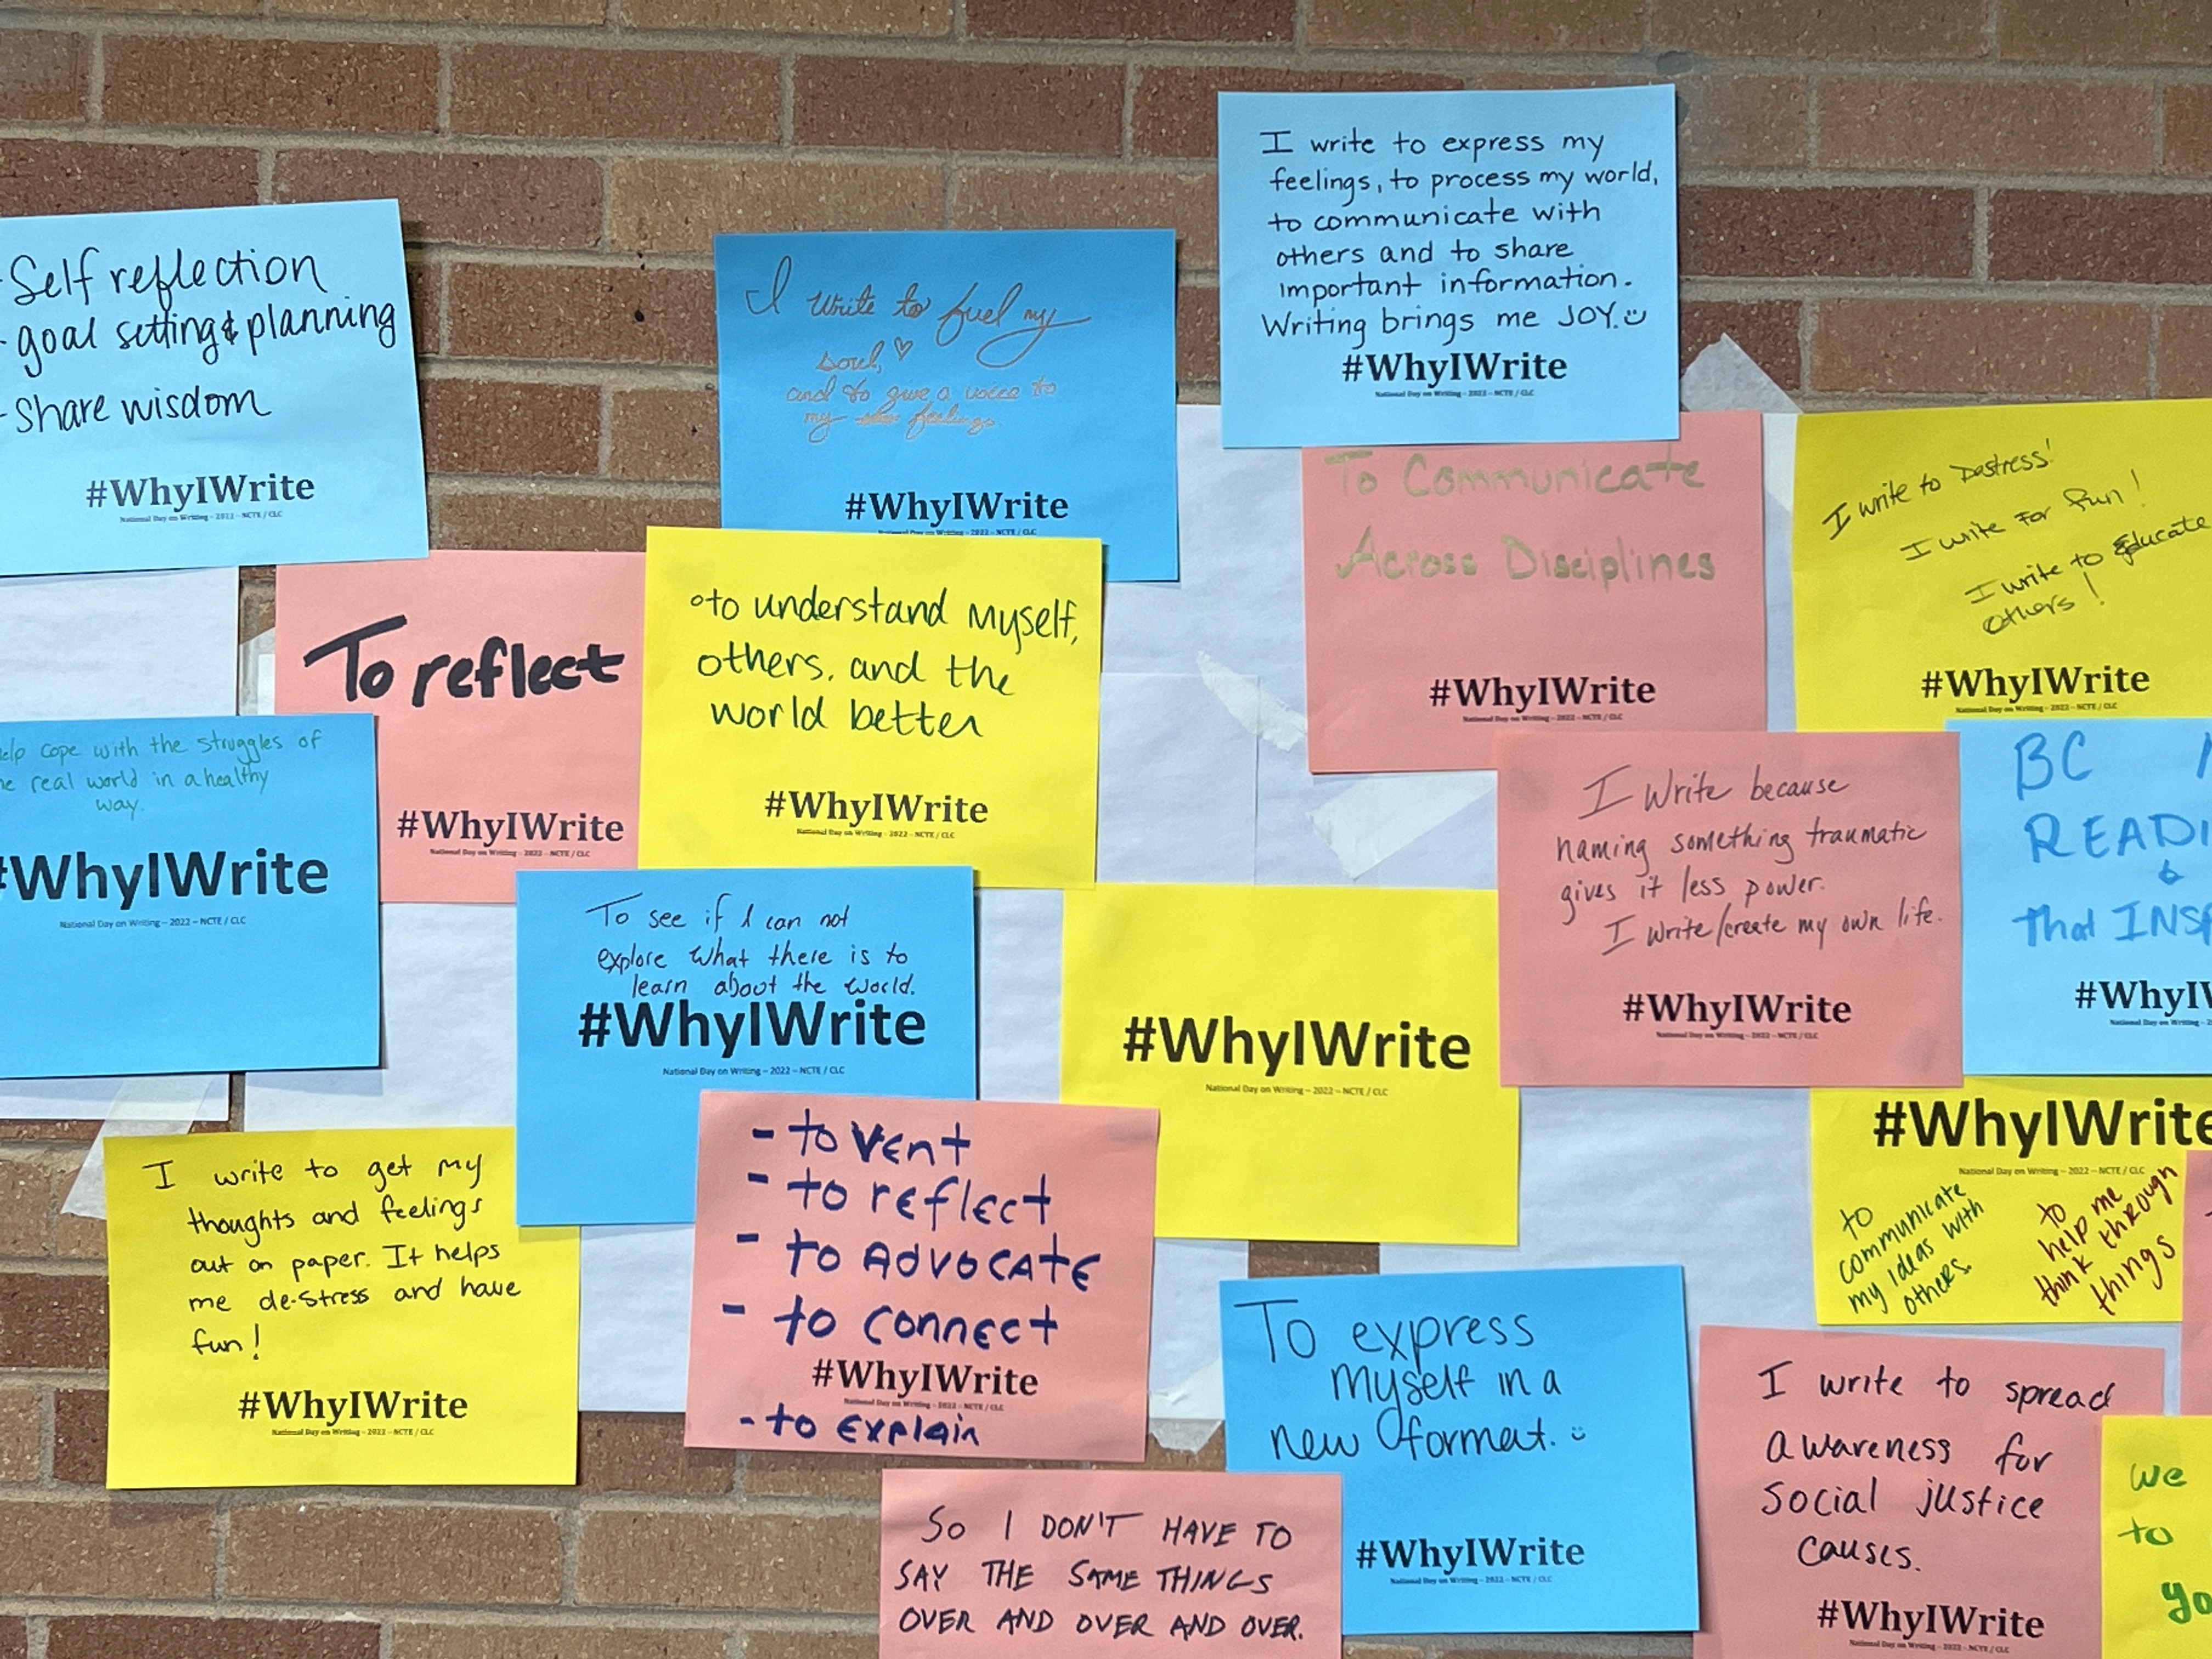 I write to express my
feelings, to process my world,
to communicate with
others and to share
important information.
Writing brings me JOY.
#WhyIWrite
National Day on Writing – 2022 – NCTE / CLC
- Self reflection
- goal setting & planning
- Share wisdom
#WhyIWrite
National Day on Writing – 2022 – NCTE / CLC
I write to fuel my
soul, ♡
and to give a voice to
my feelings.
#WhyIWrite
National Day on Writing – 2022 – NCTE / CLC
To Communicate
Across Disciplines
#WhyIWrite
National Day on Writing – 2022 – NCTE / CLC
I write to Destress!
I write For fun!
I write to Educate
others!
#WhyIWrite
National Day on Writing – 2022 – NCTE / CLC
To reflect
#WhyIWrite
National Day on Writing – 2022 – NCTE / CLC
to understand myself,
others, and the
world better
#WhyIWrite
National Day on Writing – 2022 – NCTE / CLC
cope with the struggles of
real world in a healthy
way.
#WhyIWrite
National Day on Writing – 2022 – NCTE / CLC
I write because
naming something traumatic
gives it less power.
I write/create my own life.
#WhyIWrite
National Day on Writing – 2022 – NCTE / CLC
BC
READI
&
That INSP
#WhyIW
To see if I can not
explore what there is to
learn about the world.
#WhyIWrite
National Day on Writing – 2022 – NCTE / CLC
#WhyIWrite
National Day on Writing – 2022 – NCTE / CLC
#WhyIWrite
National Day on Writing – 2022 – NCTE / CLC
to
communicate
my ideas with
others.
to
help me
think through
things
I write to get my
thoughts and feelings
out on paper. It helps
me de-stress and have
fun!
#WhyIWrite
National Day on Writing – 2022 – NCTE / CLC
- to vent
- to reflect
- to advocate
- to connect
#WhyIWrite
National Day on Writing – 2022 – NCTE / CLC
- to explain
To express
myself in a
new format.
#WhyIWrite
National Day on Writing – 2022 – NCTE / CLC
I write to spread
awareness for
social justice
causes.
#WhyIWrite
National Day on Writing – 2022 – NCTE / CLC
we
to
yo
SO I DON'T HAVE TO
SAY THE SAME THINGS
OVER AND OVER AND OVER.